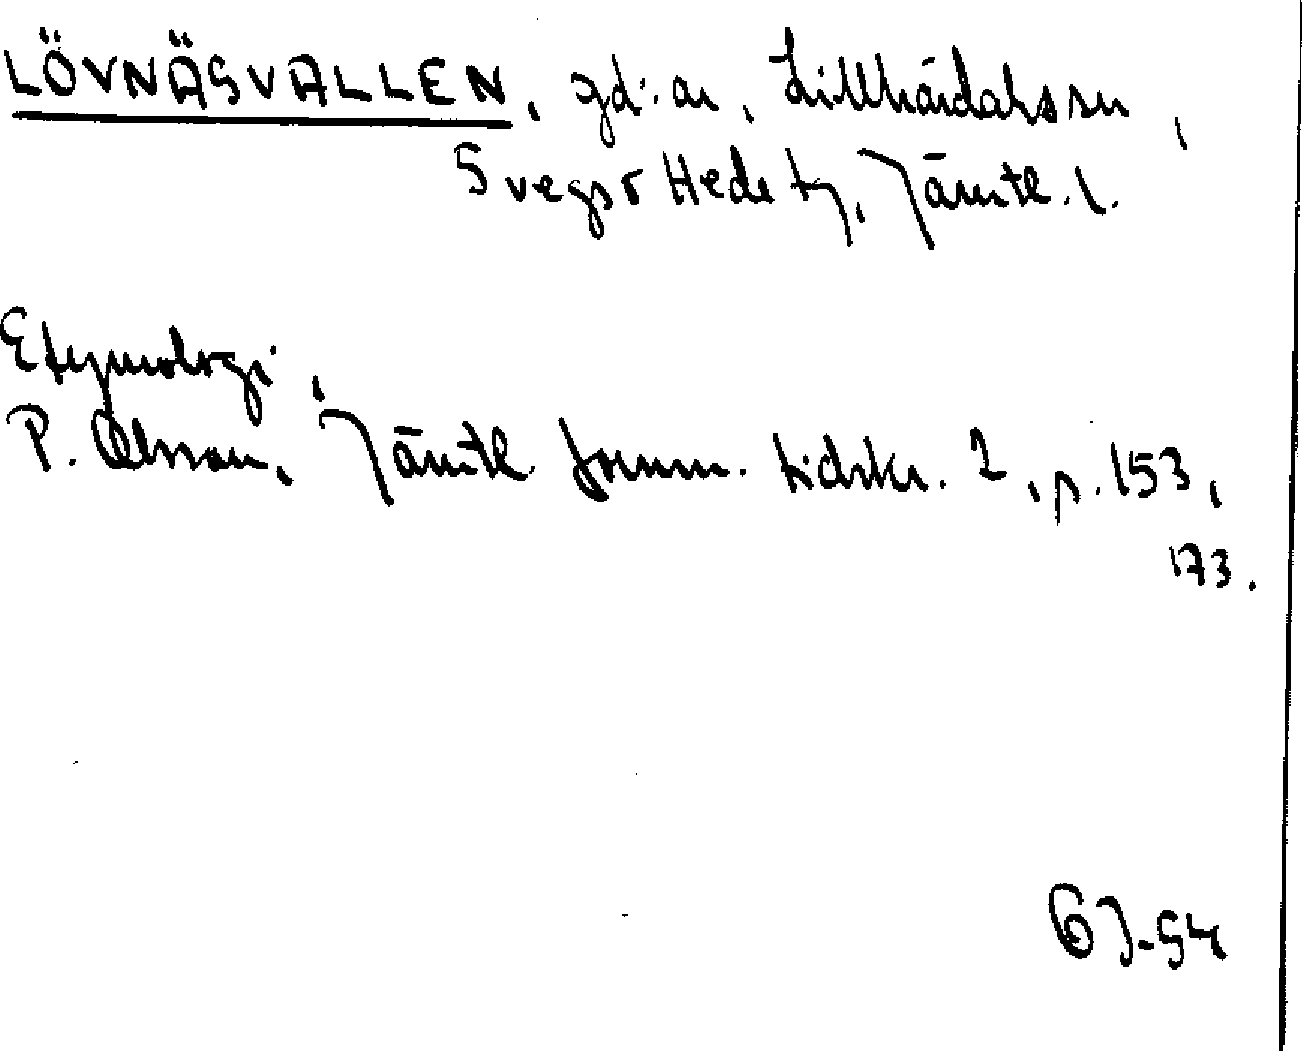 LÖVNÄSVALLEN, gd:ar, Lillhärdals sn,
Svegs o Hede tg, Jämtl. l.
Etymologi,
P. Olsson, Jämtl. fornm. tidskr. 2, p. 153,
173.
GJ-54